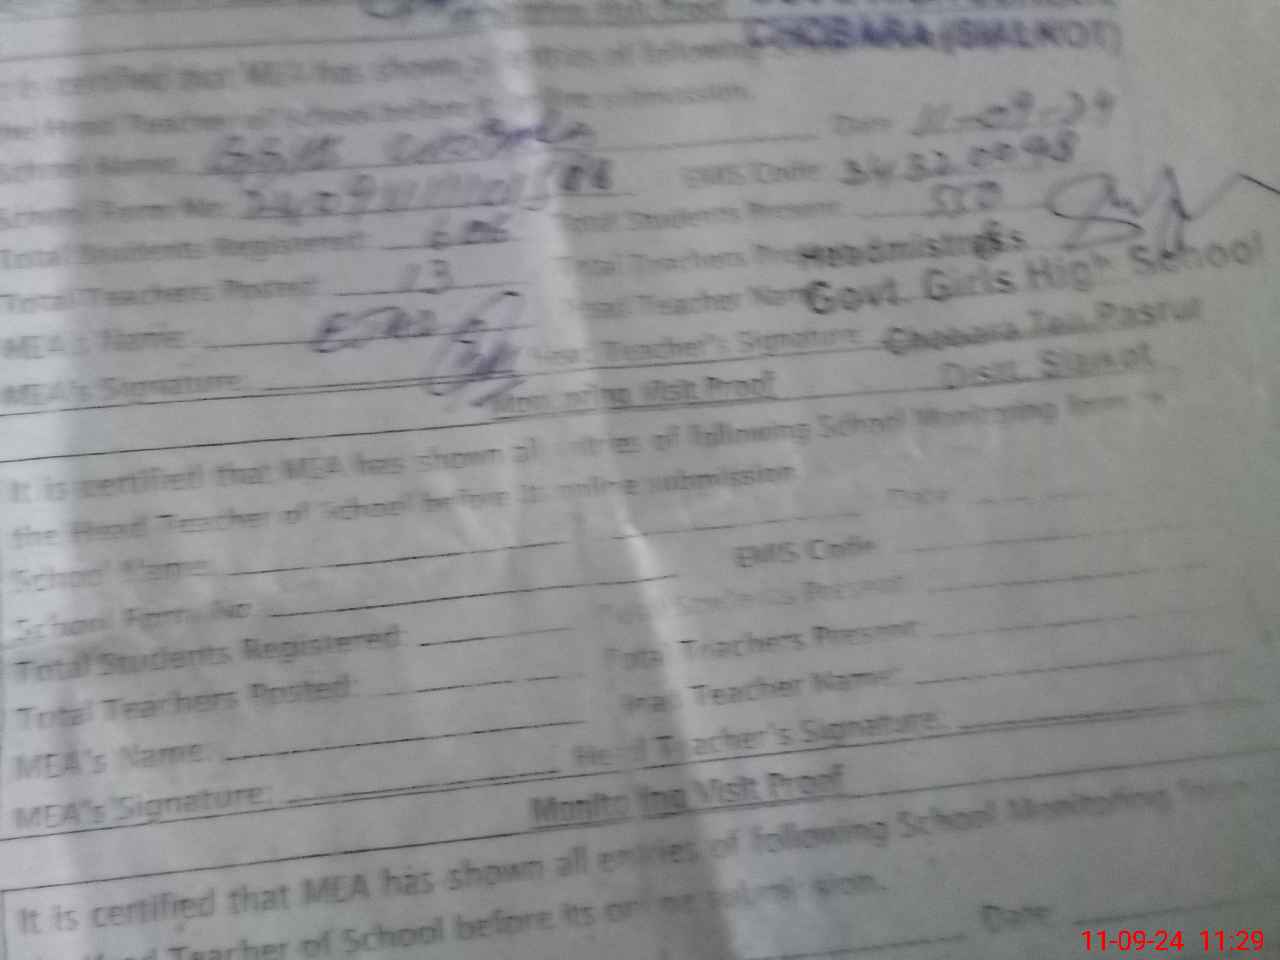 CHOBARA (SIALKOT)
It is certified that MEA has shown all entries of following
the Head Teacher of School before its online submission.
Date: 11-09-24
School Name:
School Form No: EMIS Code: 34320098
Total Students Registered: 606 Total Students Present: 550
Total Teachers Posted: 13 Total Teachers Headmistress
MEA's Name: Head Teacher Name Govt. Girls High School
MEA's Signature: Head Teacher's Signature: Chobara Teh. Pasrur
Distt. Sialkot
Monitoring Visit Proof
It is certified that MEA has shown all entries of following School Monitoring Form to
the Head Teacher of School before its online submission
School Name: Date
School Form No: EMIS Code
Total Students Registered: Total Students Present:
Total Teachers Posted: Total Teachers Present:
MEA's Name: Head Teacher Name:
MEA's Signature: Head Teacher's Signature:
Monitoring Visit Proof
It is certified that MEA has shown all entries of following School Monitoring Form
Head Teacher of School before its online submission.
Date:
11-09-24 11:29